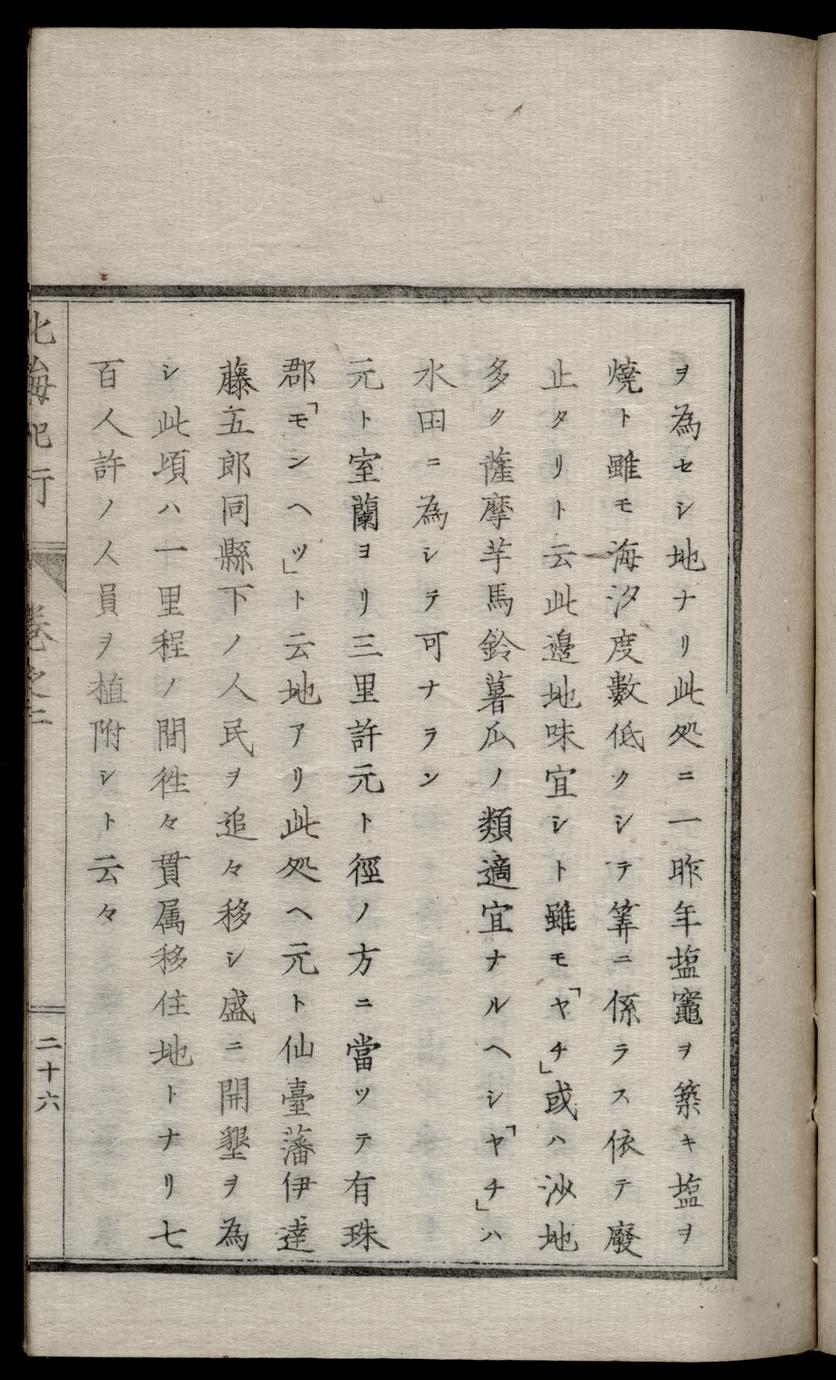 ヲ為セシ地ナリ此処ニ一昨年塩竈ヲ築キ塩ヲ
燒ト雖モ海汐度數低クシテ筭ニ係ラス依テ廢
止タリト云此邉地味宜シト雖モ「ヤチ」或ハ沙地
多ク薩摩芋馬鈴薯瓜ノ類適宜ナルヘシ「ヤチ」ハ
水田ニ為シテ可ナラン
元ト室蘭ヨリ三里許元ト徑ノ方ニ當ツテ有珠
郡「モンヘツ」ト云地アリ此処ヘ元ト仙臺藩伊達
藤五郎同縣下ノ人民ヲ追々移シ盛ニ開墾ヲ為
シ此頃ハ一里程ノ間徃々貫属移住地トナリ七
百人許ノ人員ヲ植附シト云々
北海紀行
巻之二
二十六